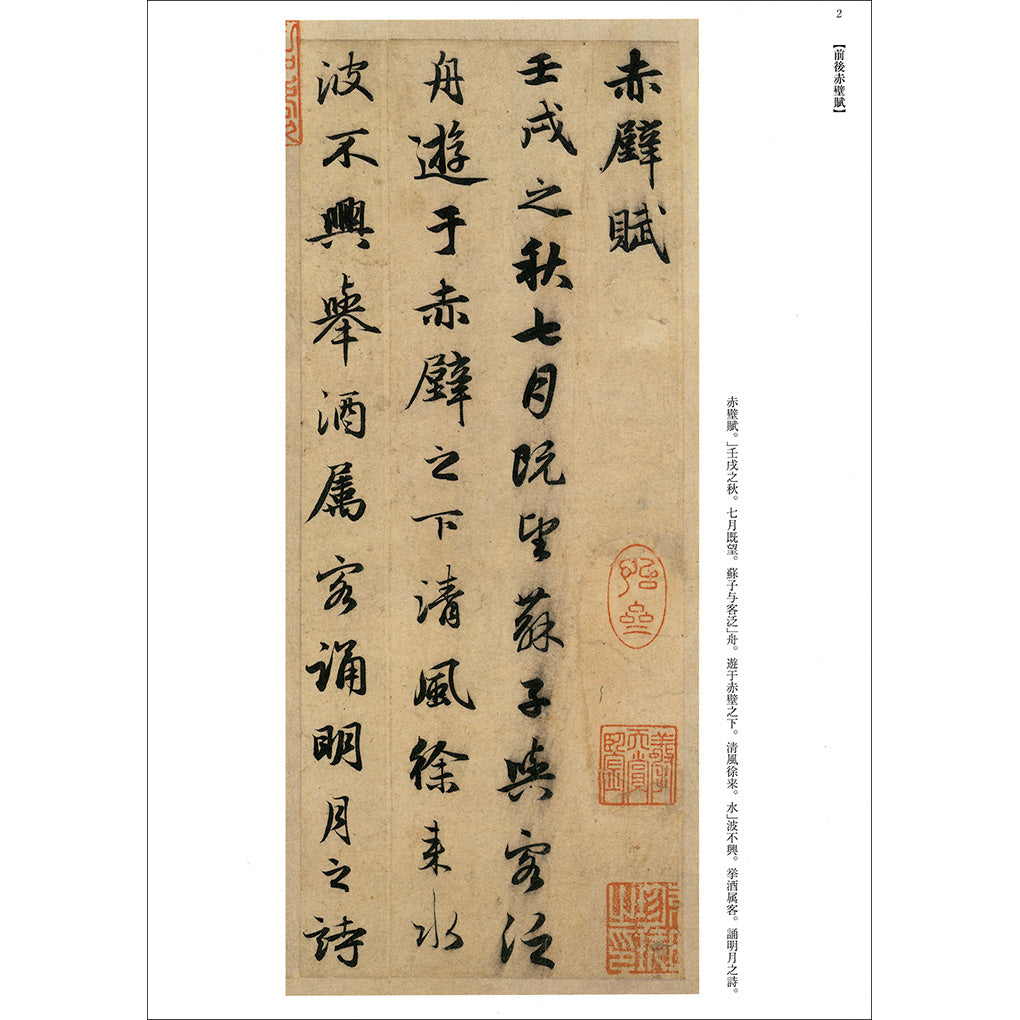 2
【前後赤壁賦】
赤壁賦。」壬戌之秋。七月既望。蘇子与客泛」舟。遊于赤壁之下。清風徐来。水」波不興。挙酒属客。誦明月之詩。
赤壁賦
壬戌之秋七月既望蘇子與客泛
舟遊于赤壁之下清風徐来水
波不興舉酒属客誦明月之詩